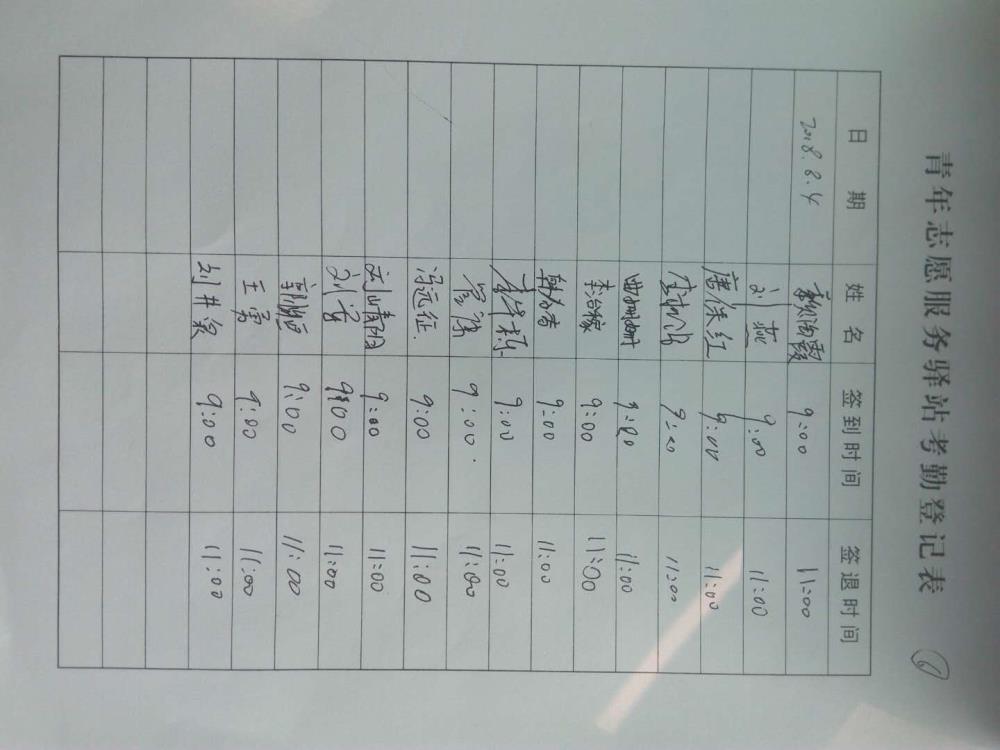 青年志愿服务驿站考勤登记表 ⑥
日期 姓名 签到时间 签退时间
2018.8.4 9:00 11:00
刘燕 9:00 11:00
唐保红 9:00 11:00
9:00 11:00
9:00 11:00
李治稼 9:00 11:00
9:00 11:00
9:00 11:00
9:00 11:00
冯远征 9:00 11:00
9:00 11:00
9:00 11:00
9:00 11:00
王雷 9:00 11:00
9:00 11:00